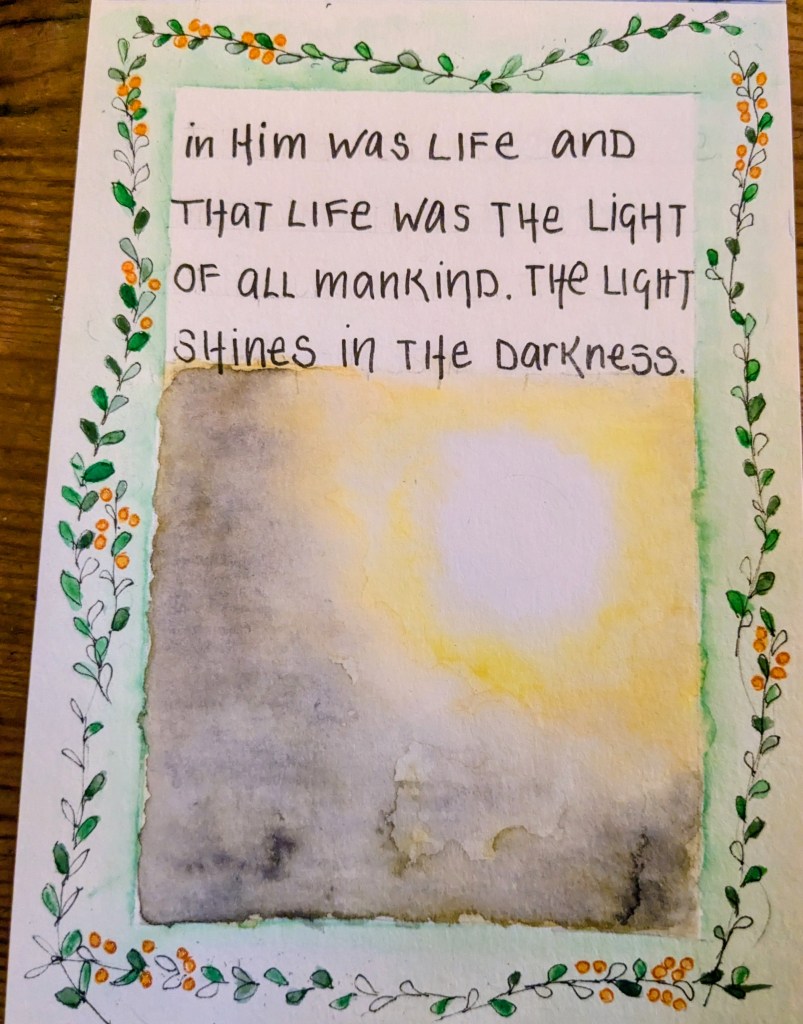 in Him was LIFe and
THaT LIFe was THe LigHT
OF aLL mankinD. THe LIGHT
SHines in THe Darkness.